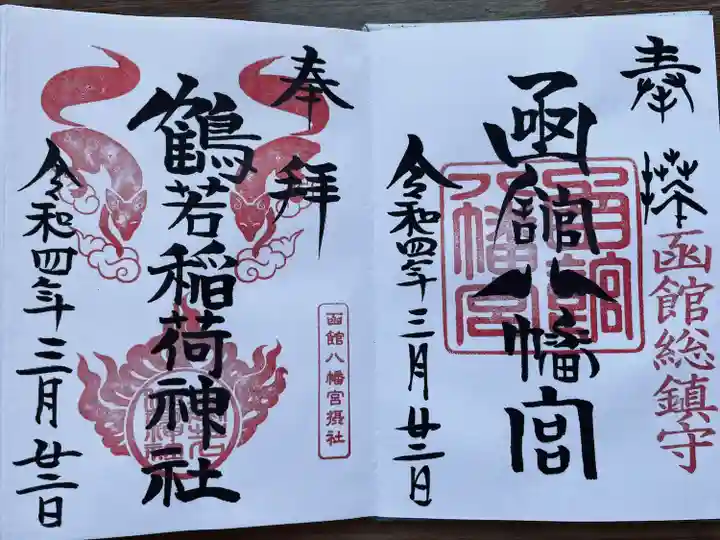 奉拝
函館総鎮守
函館八幡宮
令和四年三月廿二日
奉拝
函館八幡宮摂社
鶴若稲荷神社
令和四年三月廿二日